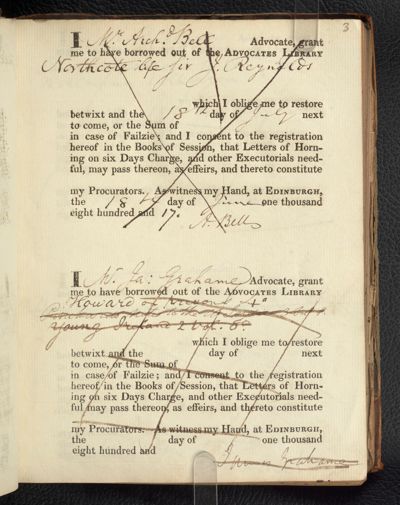 3
I Mr. Archd. Bell Advocate, grant
me to have borrowed out of the ADVOCATES LIBRARY
Northcote life Sir J. Reynolds
which I oblige me to restore
betwixt and the 18th day of July next
to come, or the Sum of
in case of Failzie; and I consent to the registration
hereof in the Books of Session, that Letters of Horn-
ing on six Days Charge, and other Executorials need-
ful, may pass thereon, as effeirs, and thereto constitute
my Procurators. As witness my Hand, at EDINBURGH,
the 18th day of June one thousand
eight hundred and 17.
A. Bell
I Mr. Ja: Grahame Advocate, grant
me to have borrowed out of the ADVOCATES LIBRARY
Howard on Prisons 4o
Young Ireland 2 vol. 8o
which I oblige me to restore
betwixt and the day of next
to come, or the Sum of
in case of Failzie; and I consent to the registration
hereof in the Books of Session, that Letters of Horn-
ing on six Days Charge, and other Executorials need-
ful may pass thereon, as effeirs, and thereto constitute
my Procurators. As witness my Hand, at EDINBURGH,
the day of one thousand
eight hundred and
James Grahame